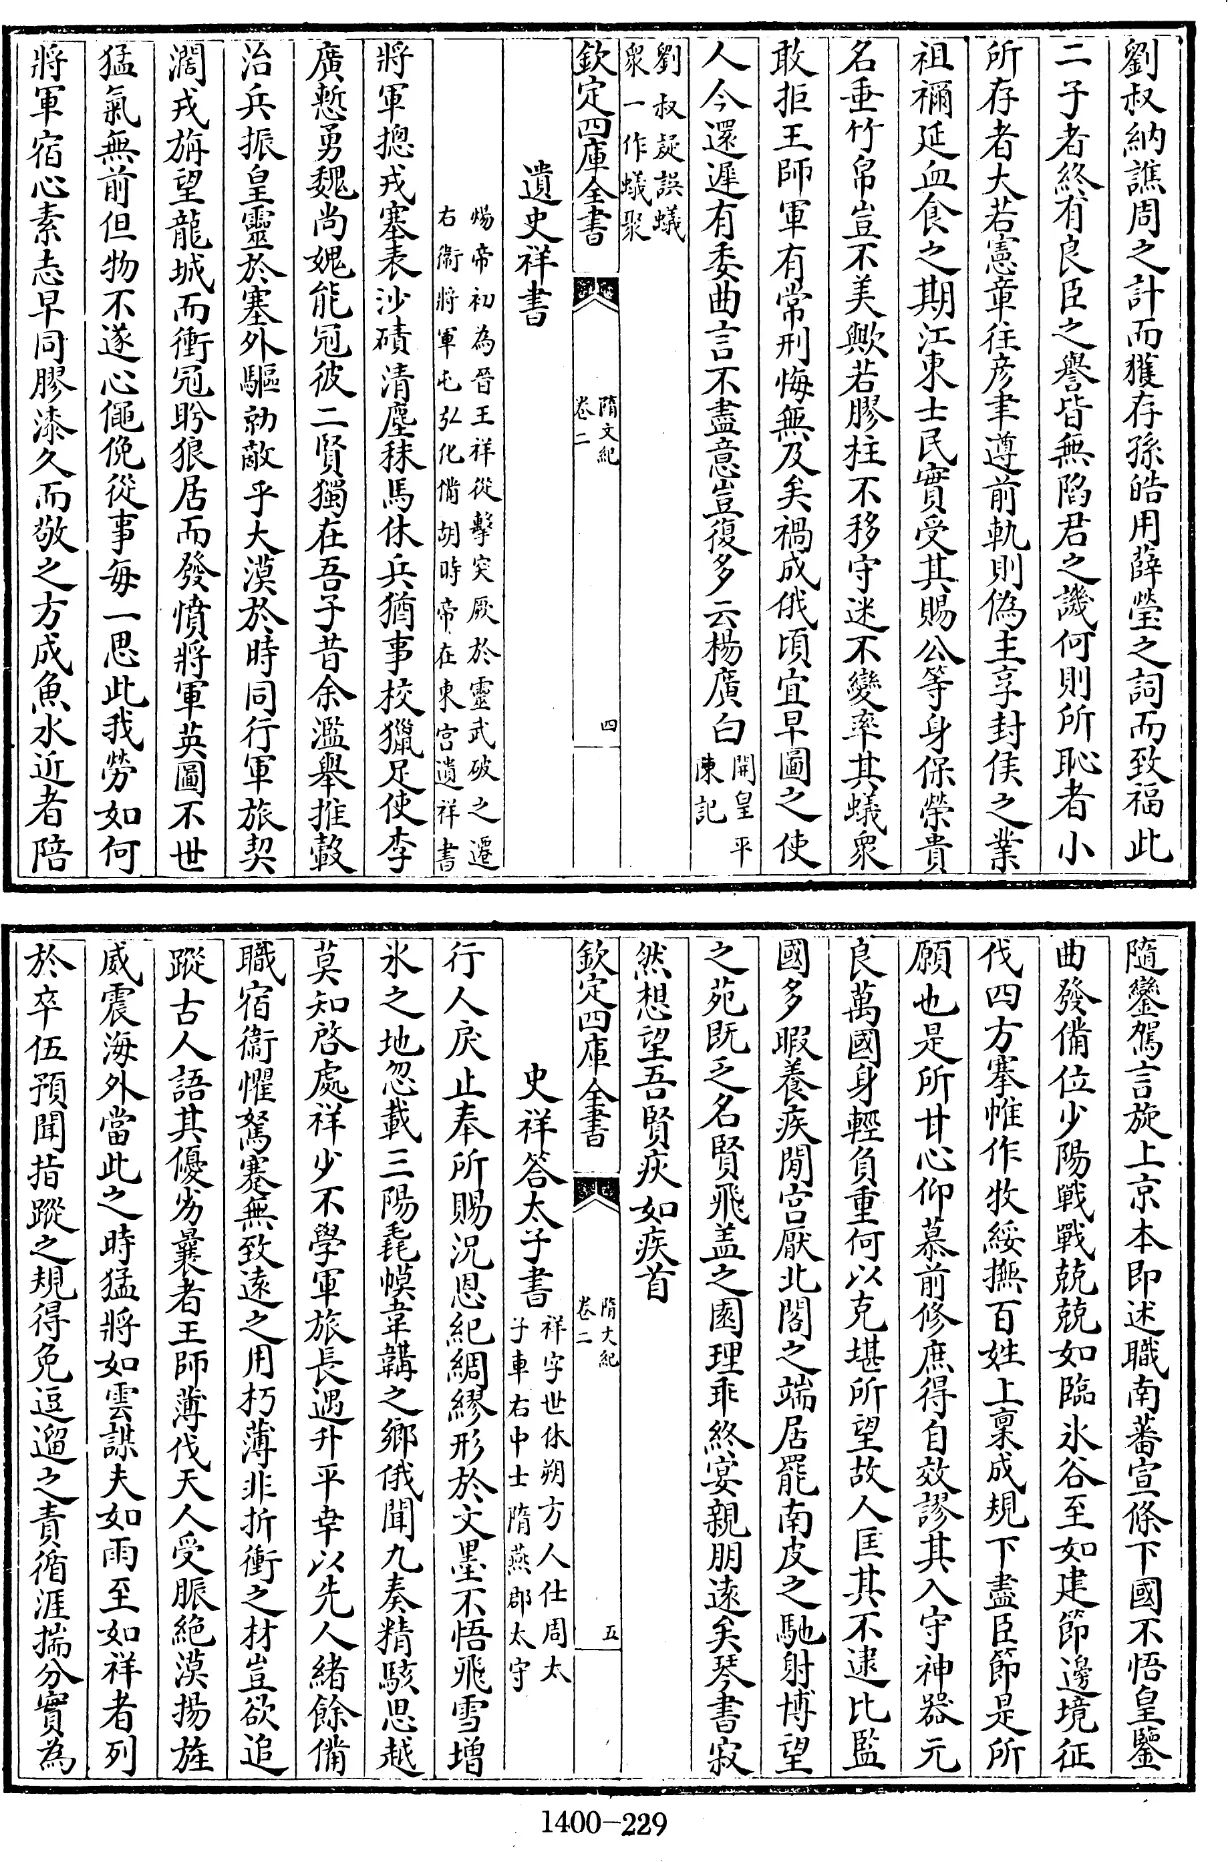 劉叔納譙周之計而獲存孫皓用薛瑩之詞而致福此
二子者終有良臣之譽皆無陷君之譏何則所恥者小
所存者大若憲章往彦聿遵前軌則偽主享封侯之業
祖禰延血食之期江東士民實受其賜公等身保榮貴
名垂竹帛豈不美歟若膠柱不移守迷不變率其蟻衆
敢拒王師軍有常刑悔無及矣禍成俄頃宜早圖之使
人今還遲有委曲言不盡意豈復多云楊廣白開皇平陳記
劉叔疑誤蟻衆一作蟻聚
欽定四庫全書 隋文紀卷二 四
遺史祥書
煬帝初為晉王祥從擊突厥於靈武破之遷
右衛將軍屯弘化備胡時帝在東宫遺祥書
將軍摠戎塞表沙磧清塵秣馬休兵猶事校獵足使李
廣慙勇魏尚媿能冠彼二賢獨在吾子昔余濫舉推轂
治兵振皇靈於塞外驅勍敵乎大漠於時同行軍旅契
濶戎旃望龍城而衝冠盻狼居而發憤將軍英圖不世
猛氣無前但物不遂心僶俛從事每一思此我勞如何
將軍宿心素志早同膠漆久而敬之方成魚水近者陪
隨鑾駕言旋上京本即述職南蕃宣條下國不悟皇鑒
曲發備位少陽戰戰兢兢如臨氷谷至如建節邊境征
伐四方搴帷作牧綏撫百姓上稟成規下盡臣節是所
願也是所甘心仰慕前修庶得自效謬其入守神器元
良萬國身輕負重何以克堪所望故人匡其不逮比監
國多暇養疾閒宫厭北閣之端居罷南皮之馳射博望
之苑既乏名賢飛盖之園理乖終宴親朋遠矣琴書寂
然想望吾賢疢如疾首
欽定四庫全書 隋文紀卷二 五
史祥答太子書祥字世休朔方人仕周太子車右中士隋燕郡太守
行人戾止奉所賜況恩紀綢繆形於文墨不悟飛雪增
氷之地忽載三陽毳幙韋韝之鄉俄聞九奏精駭思越
莫知啓處祥少不學軍旅長遇升平幸以先人緒餘備
職宿衛懼駑蹇無致遠之用朽薄非折衝之材豈欲追
蹤古人語其優劣曩者王師薄伐天人受脤絶漠揚旌
威震海外當此之時猛將如雲謀夫如雨至如祥者列
於卒伍預聞指蹤之規得免逗遛之責循涯揣分實為
1400-229